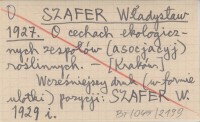 O SZAFER Władysław
1927. O cechach ekologicz-
nych zespołów (asocjacyj)
roślinnych. — [Kraków]
Wcześniejszy druk (w formie
ulotki) pozycji: SZAFER W.
1929 i.